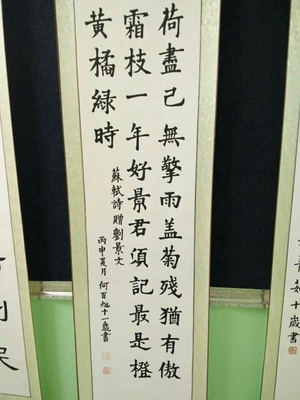 荷盡已無擎雨盖菊殘猶有傲
霜枝一年好景君須記最是橙
黃橘緑時
蘇軾詩贈劉景文
丙申夏月 何百 十一歲書
十歲書